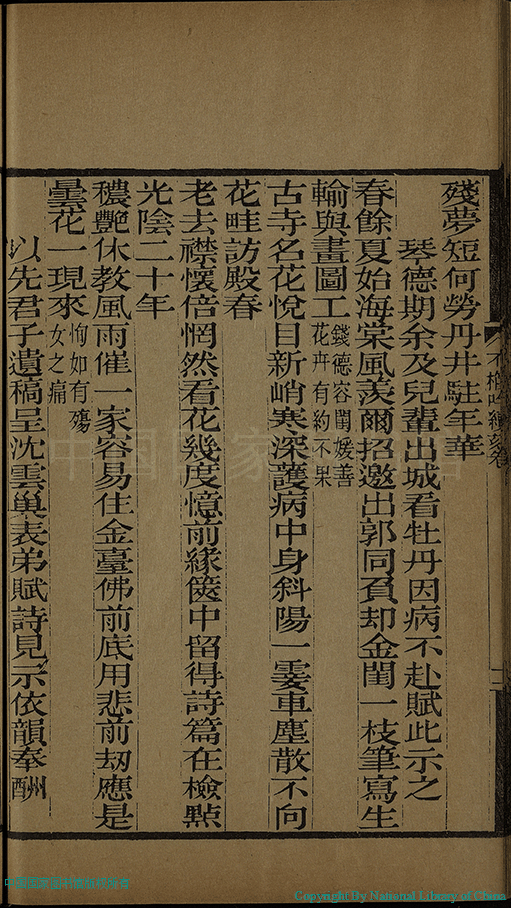 殘夢短何勞丹井駐年華
琴德期余及兒輩出城看牡丹因病不赴賦此示之
春餘夏始海棠風羨爾招邀出郭同負却金閨一枝筆寫生
輸與畫圖工錢德容閨媛善花卉有約不果
古寺名花悅目新峭寒深護病中身斜陽一霎車塵散不向
花畦訪殿春
老去襟懷倍惘然看花幾度憶前緣篋中留得詩篇在檢點
光陰二十年
穠艷休教風雨催一家容易住金臺佛前底用悲前劫應是
曇花一現來恂如有殤女之痛
以先君子遺稿呈沈雲巢表弟賦詩見示依韻奉酬
Copyright by National Library of China